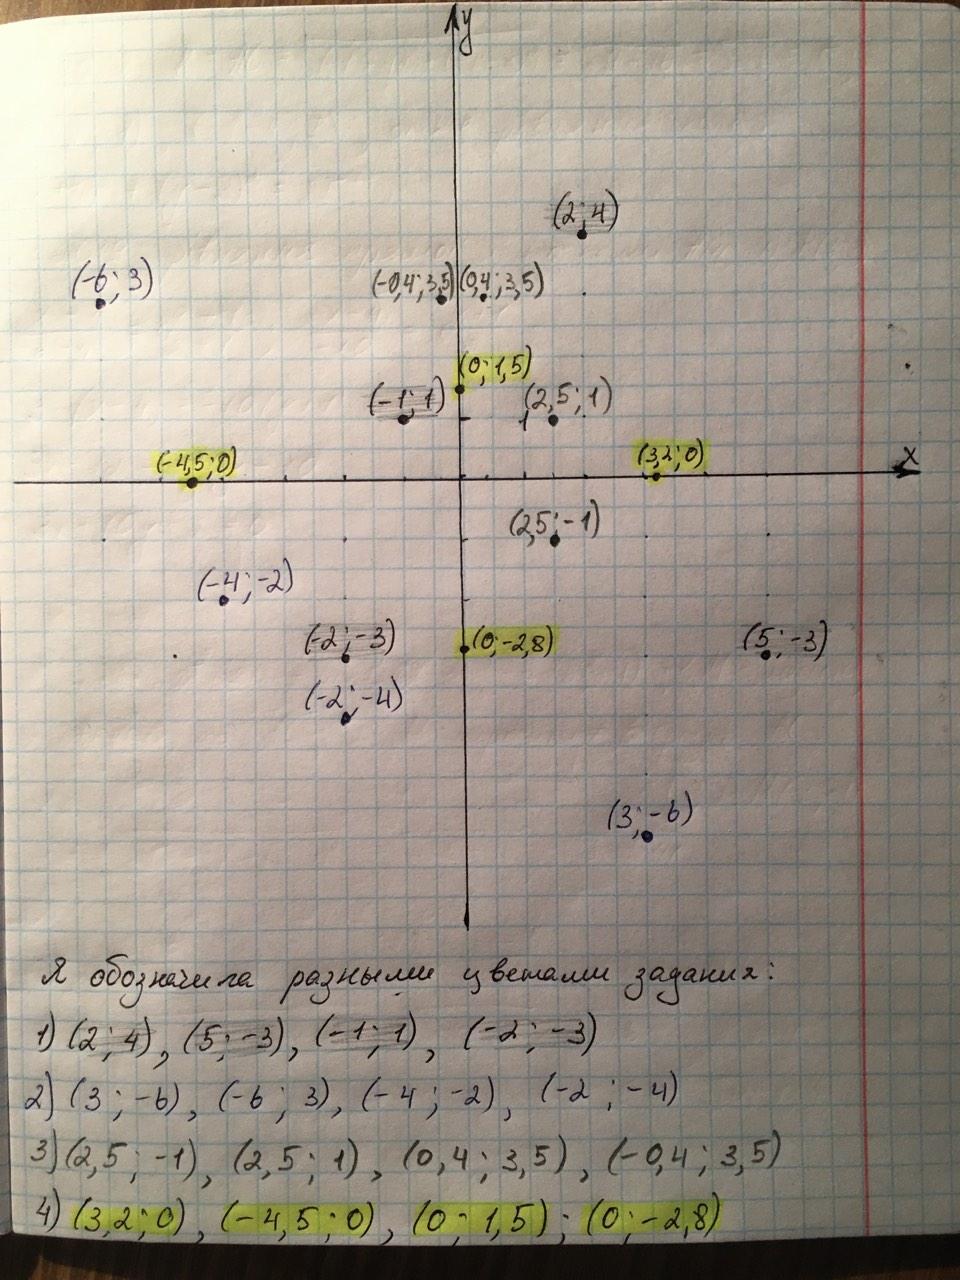 y
(2; 4)
(-6; 3)
(-0,4; 3,5) (0,4; 3,5)
(0; 1,5)
(-1; 1)
(2,5; 1)
1
(-4,5; 0)
(3,2; 0)
x
(2,5; -1)
(-4; -2)
(-2; -3)
(0; -2,8)
(5; -3)
(-2; -4)
(3; -6)
Я обозначила разными цветами задания:
1) (2; 4), (5; -3), (-1; 1), (-2; -3)
2) (3; -6), (-6; 3), (-4; -2), (-2; -4)
3) (2,5; -1), (2,5; 1), (0,4; 3,5), (-0,4; 3,5)
4) (3,2; 0), (-4,5; 0), (0; 1,5); (0; -2,8)